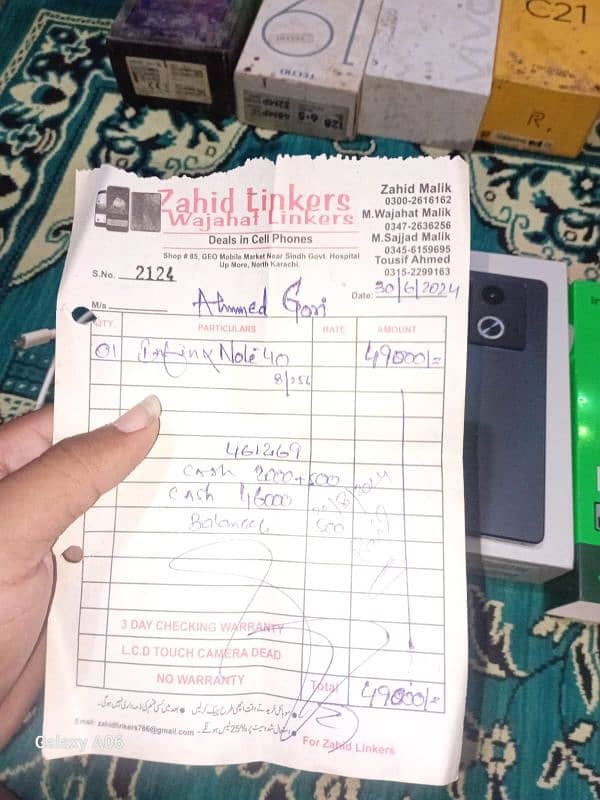 C21
TECNO
vivo
Zahid Linkers
Wajahat Linkers
Deals in Cell Phones
Shop # 85, GEO Mobile Market Near Sindh Govt. Hospital
Up More, North Karachi.
Zahid Malik
0300-2616162
M.Wajahat Malik
0347-2636256
M.Sajjad Malik
0345-6159695
Tousif Ahmed
0315-2299163
S.No. 2124
Date: 30/6/2024
M/s Ahmmed Gori
QTY. PARTICULARS RATE AMOUNT
01 Infinix Note 40 49000/=
8/256
461269
Cash 2000+500
Cash 46000
Balance 500
3 DAY CHECKING WARRANTY
L.C.D TOUCH CAMERA DEAD
NO WARRANTY
Total 49000/=
Email: zahidlinkers786@gmail.com
For Zahid Linkers
Galaxy A06